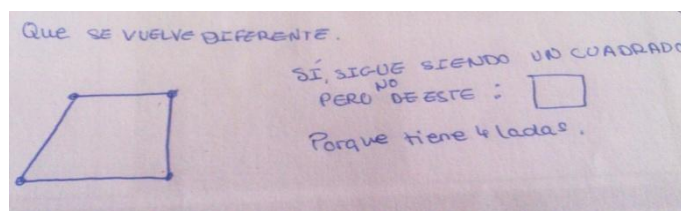 QUE SE VUELVE DIFERENTE.
SÍ, SIGUE SIENDO UN CUADRADO
PERO NO DE ESTE :
Porque tiene 4 ladas.